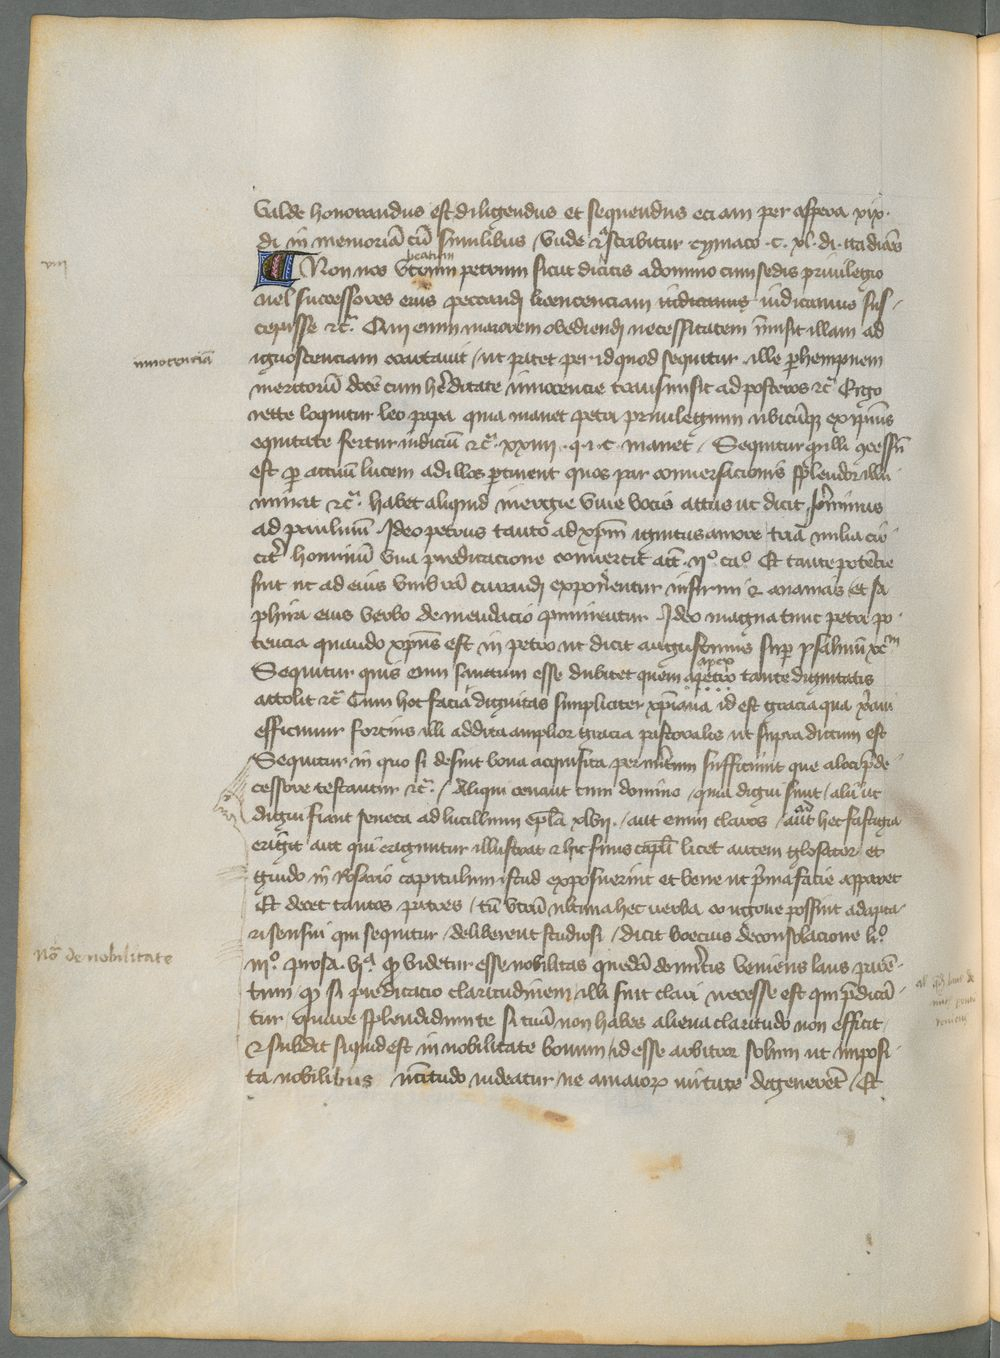 Valde honorandus est diligendus et sequendus eciam per aspera xix.
di. in memoriā cū similibus / Vnde & scribitur Symaco .c. xl. di. ita dicēs
viij
beatum
Non nos petrum sicut dicitis a domino cum sedis priuilegio
uel successores eius peccandj licencenciam iudicamus sus/
cepisse &c̄. Qui enim maiorem obediendj necessitatem īmisit illam ad
innocenciā
ignoscenciam coartauit / ut patet per id quod sequitur . ille perhempnem
meritorū dotē cum hereditate innocencie transmisit ad posteros &c̄ Ergo
recte loquitur leo papa quia manet petri priuilegium ubicūq; ex ipsius
equitate fertur iudiciū &c̄. xxiiij .q.i.c. manet / Sequitur q illi
est per actuū lucem ad illos pertinent quos par conuersacionis splendor illu/
minat &c̄. habet aliquid inergie viue vocis actus ut dicit Jeronimus
ad paulinū . Ideo petrus tanto ad xp̄m ignitus amore tria milia
hominū vna predicacione conuertit act. ijº. caº. Et tante potencie
fuit ut ad eius vmbrā curandj exponerentur infirmi & ananias / et sa
phira eius verbo de mendacio punirentur . Ideo magna tunc petri po/
tencia quando xp̄us est in petro ut dicit augustinus super psalmū
Sequitur quis enim sanctum esse dubitet quem apex tante dignitatis
attolit &c̄ Cum hoc faciat dignitas simpliciter xp̄iana id est gracia qua
efficimur forcius illi addita amplior gracia pastoralis ut supra dictum est
Sequitur in quo si desint bona acquisita per meritum sufficiunt que a loci prede/
cessore testantur &c̄. / Aliqui cenant tecum domino / quia digni sunt / alij ut
digni fiant seneca ad lucillium epl̄a xlvij. / aut enim claros / aut ad hec fastigia
erigit aut qui eriguntur illustrat & hic finis capl̄i licet autem glosator et
guido in Rosario capitulum istud exposuerint et bene ut prima facie apparet
Et decet tantos patres / tū vtrū ultima hec uerba congrue possint adapta/
ri sensui qui sequitur / deliberent studiosi / dicit boecius de consolacione liº.
Nō de nobilitate
iijº. prosa. vjª. q videtur esse nobilitas quedā de meritis veniens laus paren/
tum / q si predicacio claritudinem / illi sint clari necesse est qui predicā/
tur / Quare splendidum te si tuā non habes aliena claritudo non efficit
& subdit si quid est in nobilitate bonum / id esse arbitror solum ut imposi/
ta nobilibus ncitudo uideatur / ne a maiorꝝ uirtute degenerent / Et